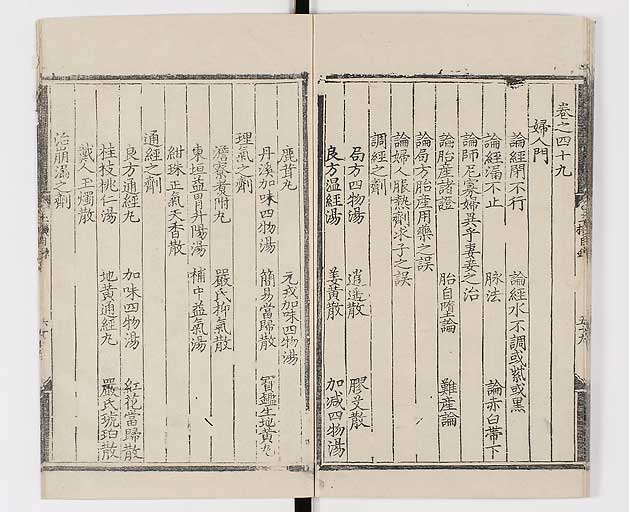 卷之四十九
婦人門
論經閉不行 論經水不調或紫或黑
論經漏不止 脉法 論赤白帶下
論師尼寡婦異乎妻妾之治
論胎産諸證 胎自墮論 難産論
論局方胎産用藥之誤
論婦人服熱劑求子之誤
調經之劑
局方四物湯 逍遥散 膠艾散
良方溫經湯 姜黃散 加減四物湯
鹿茸丸 元戎加味四物湯
丹溪加味四物湯 簡易當歸散 寶鑑生地黃丸
理氣之劑
澹寮煮附丸 嚴氏抑氣散
東垣益胃升陽湯 補中益氣湯
紺珠正氣天香散
通經之劑
良方通經丸 加味四物湯 紅花當歸散
桂枝桃仁湯 地黃通經丸 嚴氏琥珀散
戴人玉燭散
治崩漏之劑